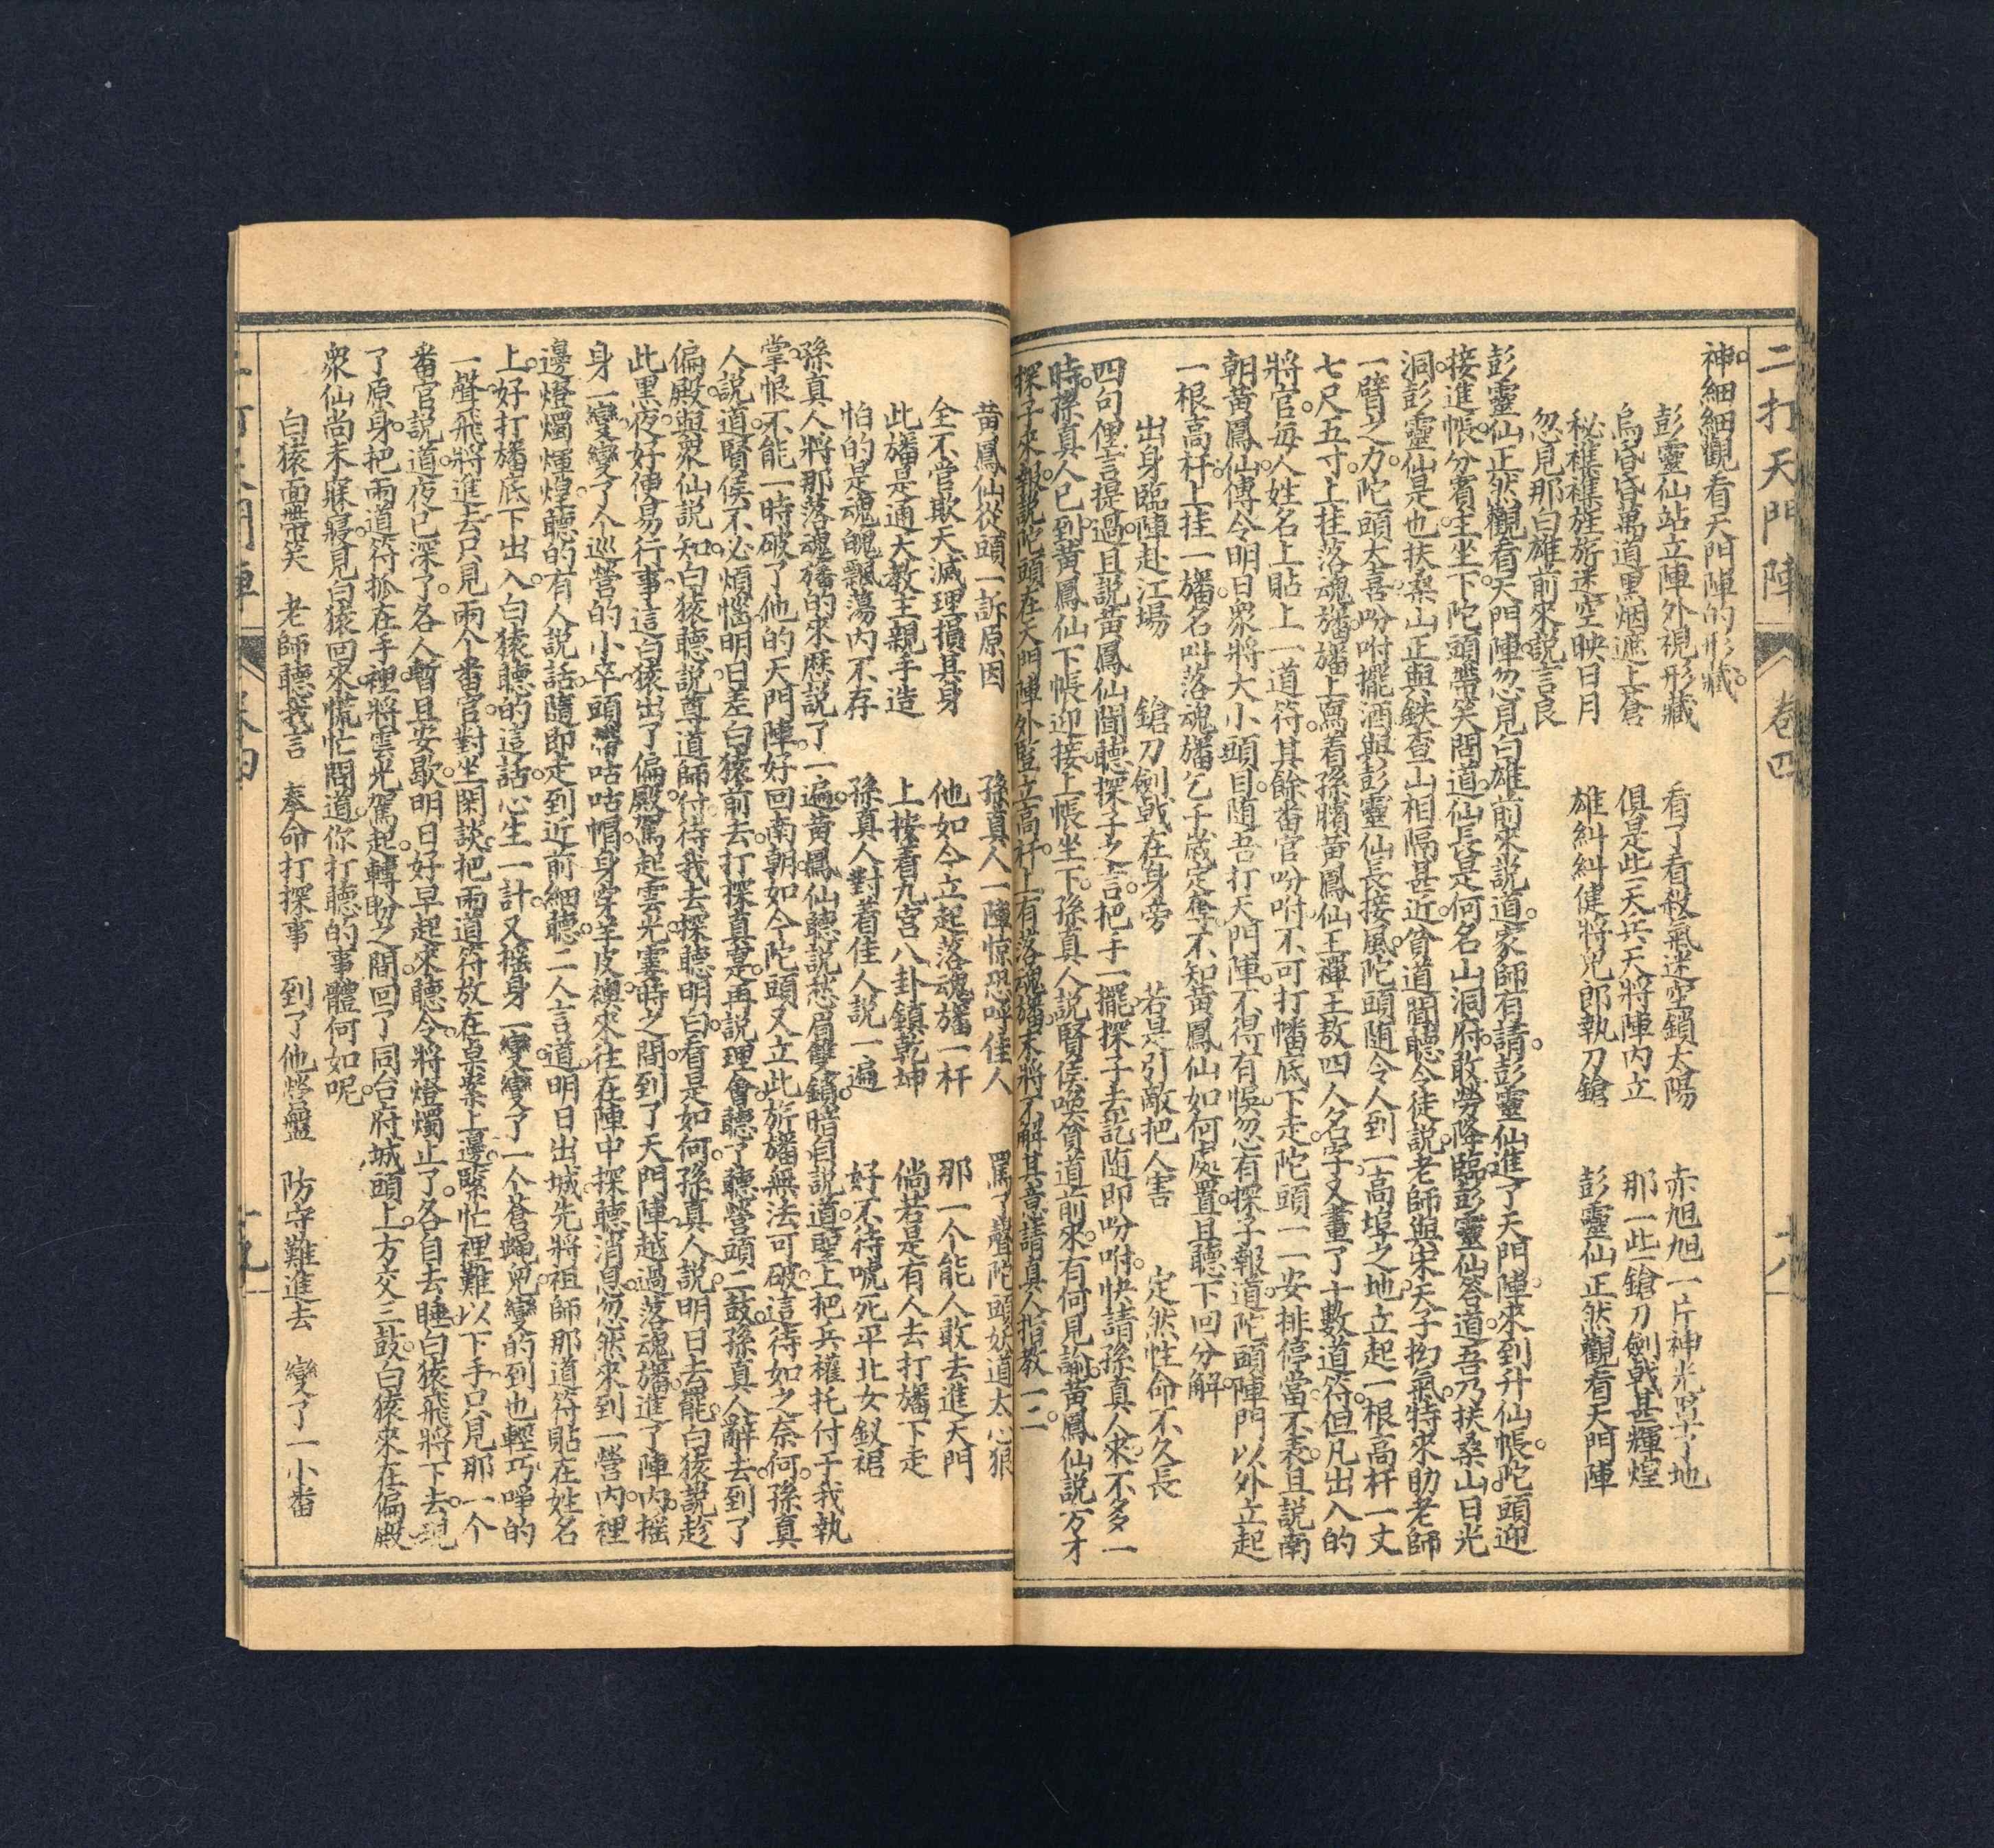 二打天門陣 卷四 十八
神細細觀看天門陣的形藏
彭靈仙站立陣外視形藏 看了看殺氣迷空鎖太陽 赤旭旭一片神光罩了地
烏昏昏萬道黑烟遮上蒼 俱是些天兵天將陣內立 那一些鎗刀劍戟甚輝煌
秘禚禚旌旂迷空映日月 雄糾糾健將兒郎執刀鎗 彭靈仙正然觀看天門陣
忽見那白雄前來説言良
彭靈仙正然觀看天門陣忽見白雄前來説道家師有請彭靈仙進了天門陣來到升仙帳陀頭迎
接進帳分賓主坐下陀頭帶笑問道仙長是何名山洞府敢勞降臨彭靈仙答道吾乃扶桑山日光
洞彭靈仙是也扶桑山正與鉄查山相隔甚近貧道聞聽令徒説老師與宋天子抅氣特來助老師
一臂之力陀頭大喜吩咐擺酒與彭靈仙長接風陀頭随令人到一高埠之地立起一根高杆一丈
七尺五寸上挂落魂旛旛上寫着孫臏黃鳳仙王禪王敖四人名字又畫了十數道符但凡出入的
將官每人姓名上貼上一道符其餘番官吩咐不可打幡底下走陀頭一一安排停當不表且説南
朝黃鳳仙傳令明日衆將大小頭目随吾打天門陣不得有悮忽有探子報道陀頭陣門以外立起
一根高杆上挂一旛名叫落魂旛乞千歲定奪不知黃鳳仙如何處置且聽下回分解
出身臨陣赴江場 鎗刀劍戟在身旁 若是引敵把人害 定然性命不久長
四句俚言提過且説黃鳳仙聞聽探子之言把手一擺探子去訖随即吩咐快請孫真人來不多一
時孫真人已到黃鳳仙下帳迎接上帳坐下孫真人説賢侯喚貧道前來有何見諭黃鳳仙説方才
探子來報説陀頭在天門陣外豎立高杆上有落魂旛末將不解其意請真人指教一二
黃鳳仙從頭一訴原因 孫真人一陣惊恐呼佳人 罵了聲陀頭妖道太心狠
全不管欺天滅理損其身 他如今立起落魂旛一杆 那一个能人敢去進天門
此旛是通大教主親手造 上按着九宮八卦鎮乾坤 倘若是有人去打旛下走
怕的是魂魄飄蕩內不存 孫真人對着佳人説一遍 好不待唬死平北女釵裙
孫真人將那落魂旛的來歷説了一遍黃鳳仙聽説愁眉雙鎖暗自説道聖上把兵權托付于我執
掌恨不能一時破了他的天門陣好回南朝如今陀頭又立此旂旛無法可破這待如之奈何孫真
人説道賢侯不必煩惱明日差白猿前去打探真寔再説理會聽了聽營頭二鼓孫真人辭去到了
偏殿與衆仙説知白猿聽説尊道師付待我去探聽明白看是如何孫真人説明日去罷白猿説趁
此黑夜好便易行事這白猿出了偏殿駕起雲光霎時之間到了天門陣越過落魂旛進了陣內摇
身一變變了个巡營的小卒頭帶咕咕帽身穿羊皮襖來往在陣中探聽消息忽然來到一營內裡
邊燈燭煇煌聽的有人説話隨即走到近前細聽二人言道明日出城先將祖師那道符貼在姓名
上好打旛底下出入白猿聽的這話心生一計又摇身一變變了一个蒼蝇兒變的到也輕巧嘚的
一聲飛將進去只見兩个番官對坐閑談把兩道符放在桌案上邊緊忙裡難以下手只見那一个
番官説道夜已深了各人暫且安歇明日好早起來聽令將燈燭止了各自去睡白猿飛將下去現
了原身把兩道符抓在手裡將雲光駕起轉盼之間回了同台府城頭上方交三鼓白猿來在偏殿
衆仙尚未寐寢見白猿回來慌忙問道你打聽的事體何如呢
白猿面帶笑 老師聽我言 奉命打探事 到了他營盤 防守難進去 變了一小番
二打天門陣 卷四 十九